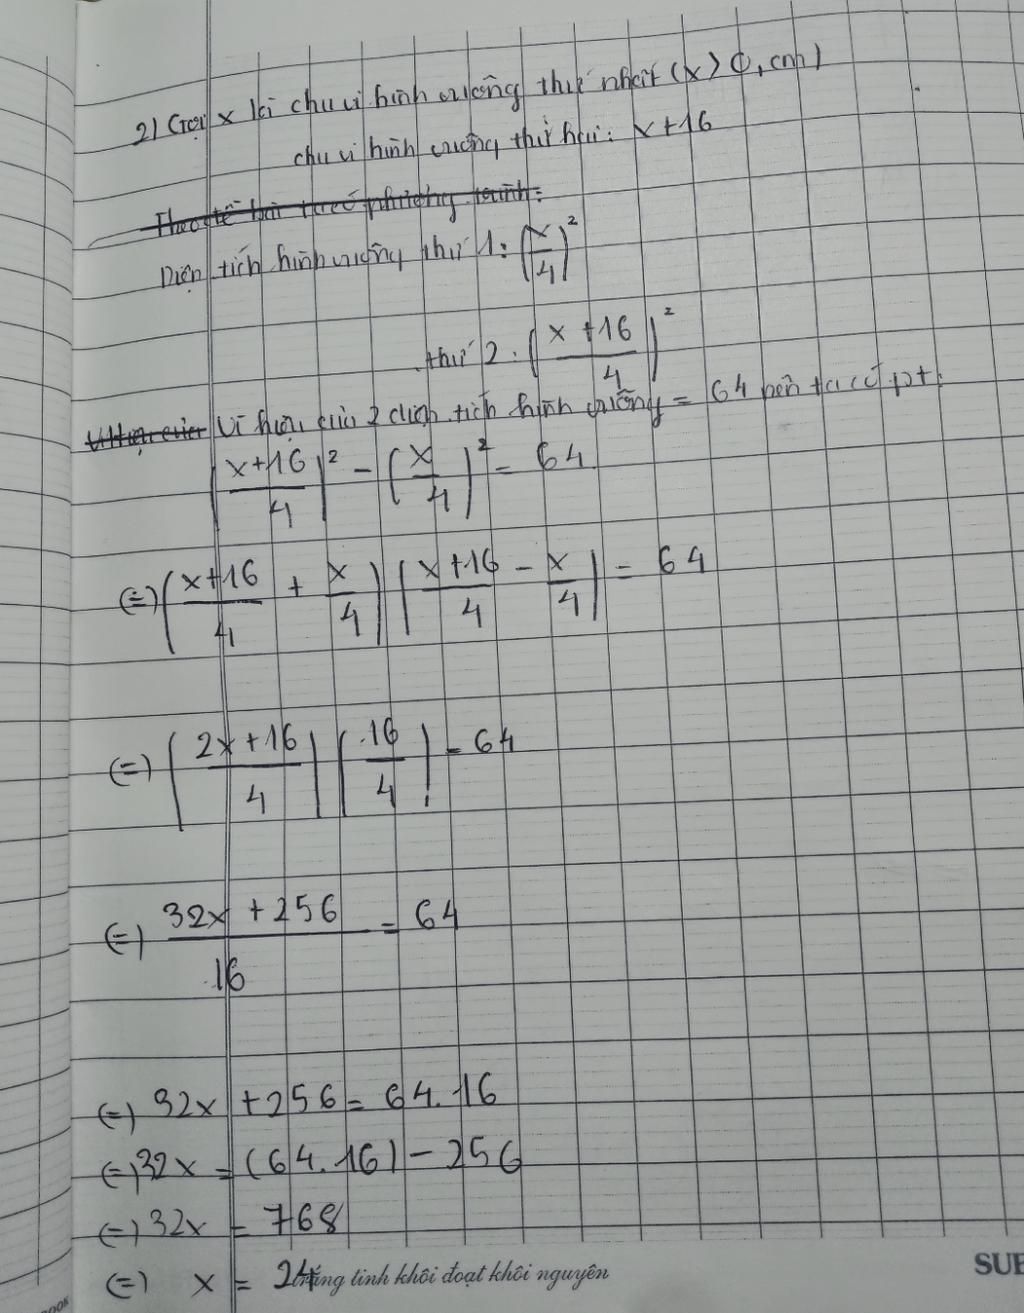 2) Gọi x là chu vi hình vuông thứ nhất (x > 0, cm)
chu vi hình vuông thứ hai: x + 16
Theo đề bài ta có phương trình:
Diện tích hình vuông thứ 1: (x/4)²
thứ 2: ((x + 16)/4)²
Vì hiệu của 2 diện tích hình vuông = 64 nên ta có pt:
((x+16)/4)² - (x/4)² = 64
(=) ((x+16)/4 + x/4) ((x+16)/4 - x/4) = 64
(=) ((2x+16)/4) (16/4) = 64
(=) (32x + 256)/16 = 64
(=) 32x + 256 = 64.16
(=) 32x = (64.16) - 256
(=) 32x = 768
(=) x = 24
tinh khôi đoạt khôi nguyên
SUB
BOOK